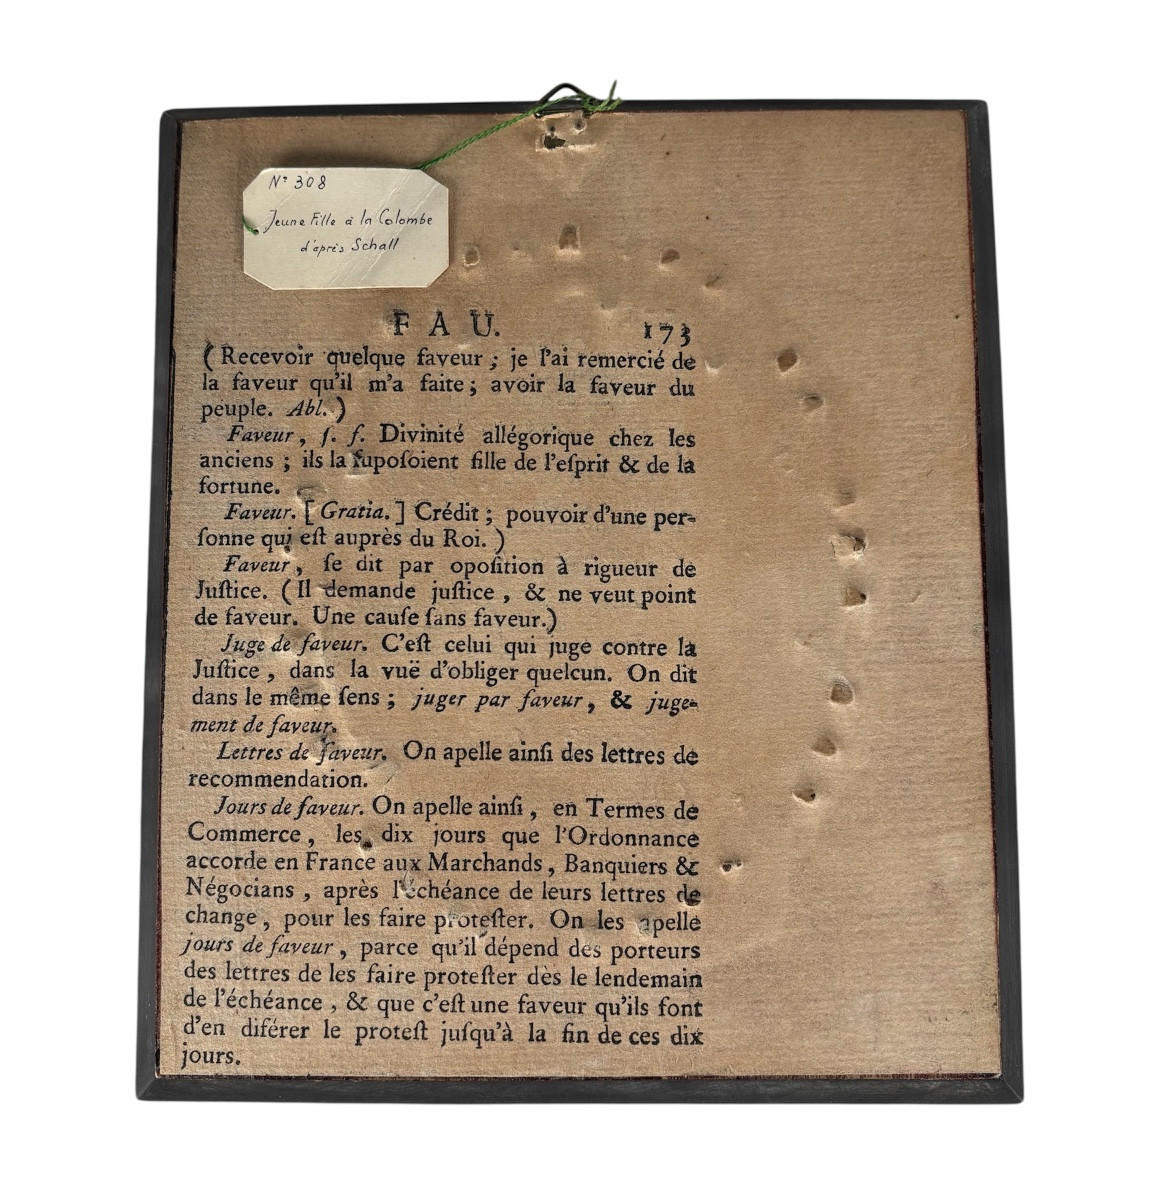 N° 308
Jeune Fille à la Colombe
d'après Schall
FAU. 173
(Recevoir quelque faveur ; je l'ai remercié de
la faveur qu'il m'a faite ; avoir la faveur du
peuple. Abl.)
Faveur, ſ. f. Divinité allégorique chez les
anciens ; ils la ſupoſoient fille de l'eſprit & de la
fortune.
Faveur. [Gratia.] Crédit ; pouvoir d'une per-
ſonne qui eſt auprès du Roi.)
Faveur, ſe dit par opoſition à rigueur de
Juſtice. (Il demande juſtice, & ne veut point
de faveur. Une cauſe ſans faveur.)
Juge de faveur. C'eſt celui qui juge contre la
Juſtice, dans la vuë d'obliger quelcun. On dit
dans le même ſens ; juger par faveur, & juge-
ment de faveur.
Lettres de faveur. On apelle ainſi des lettres de
recommendation.
Jours de faveur. On apelle ainſi, en Termes de
Commerce, les dix jours que l'Ordonnance
accorde en France aux Marchands, Banquiers &
Négocians, après l'échéance de leurs lettres de
change, pour les faire proteſter. On les apelle
jours de faveur, parce qu'il dépend des porteurs
des lettres de les faire proteſter dès le lendemain
de l'échéance, & que c'eſt une faveur qu'ils font
d'en diférer le proteſt juſqu'à la fin de ces dix
jours.